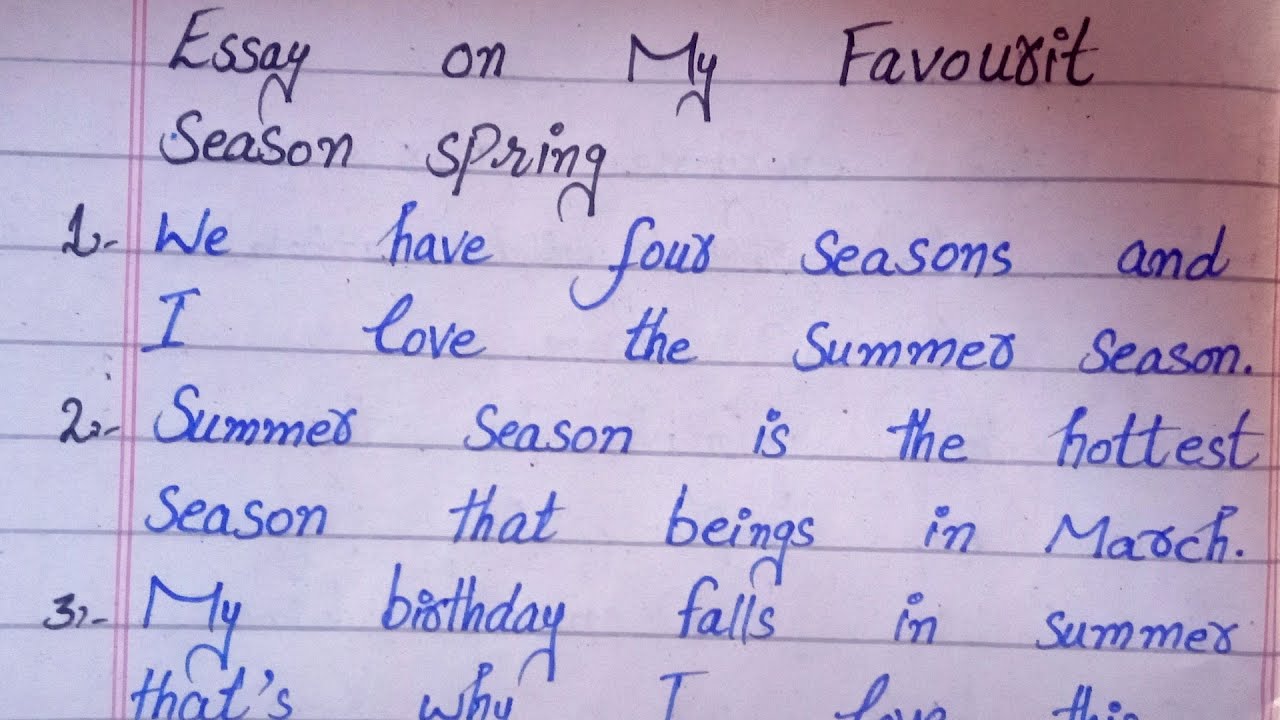 Essay on My Favourit
Season spring
1.- We have four seasons and
I love the summer season.
2.- Summer season is the hottest
season that beings in March.
3.- My birthday falls in summer
that's why I love this